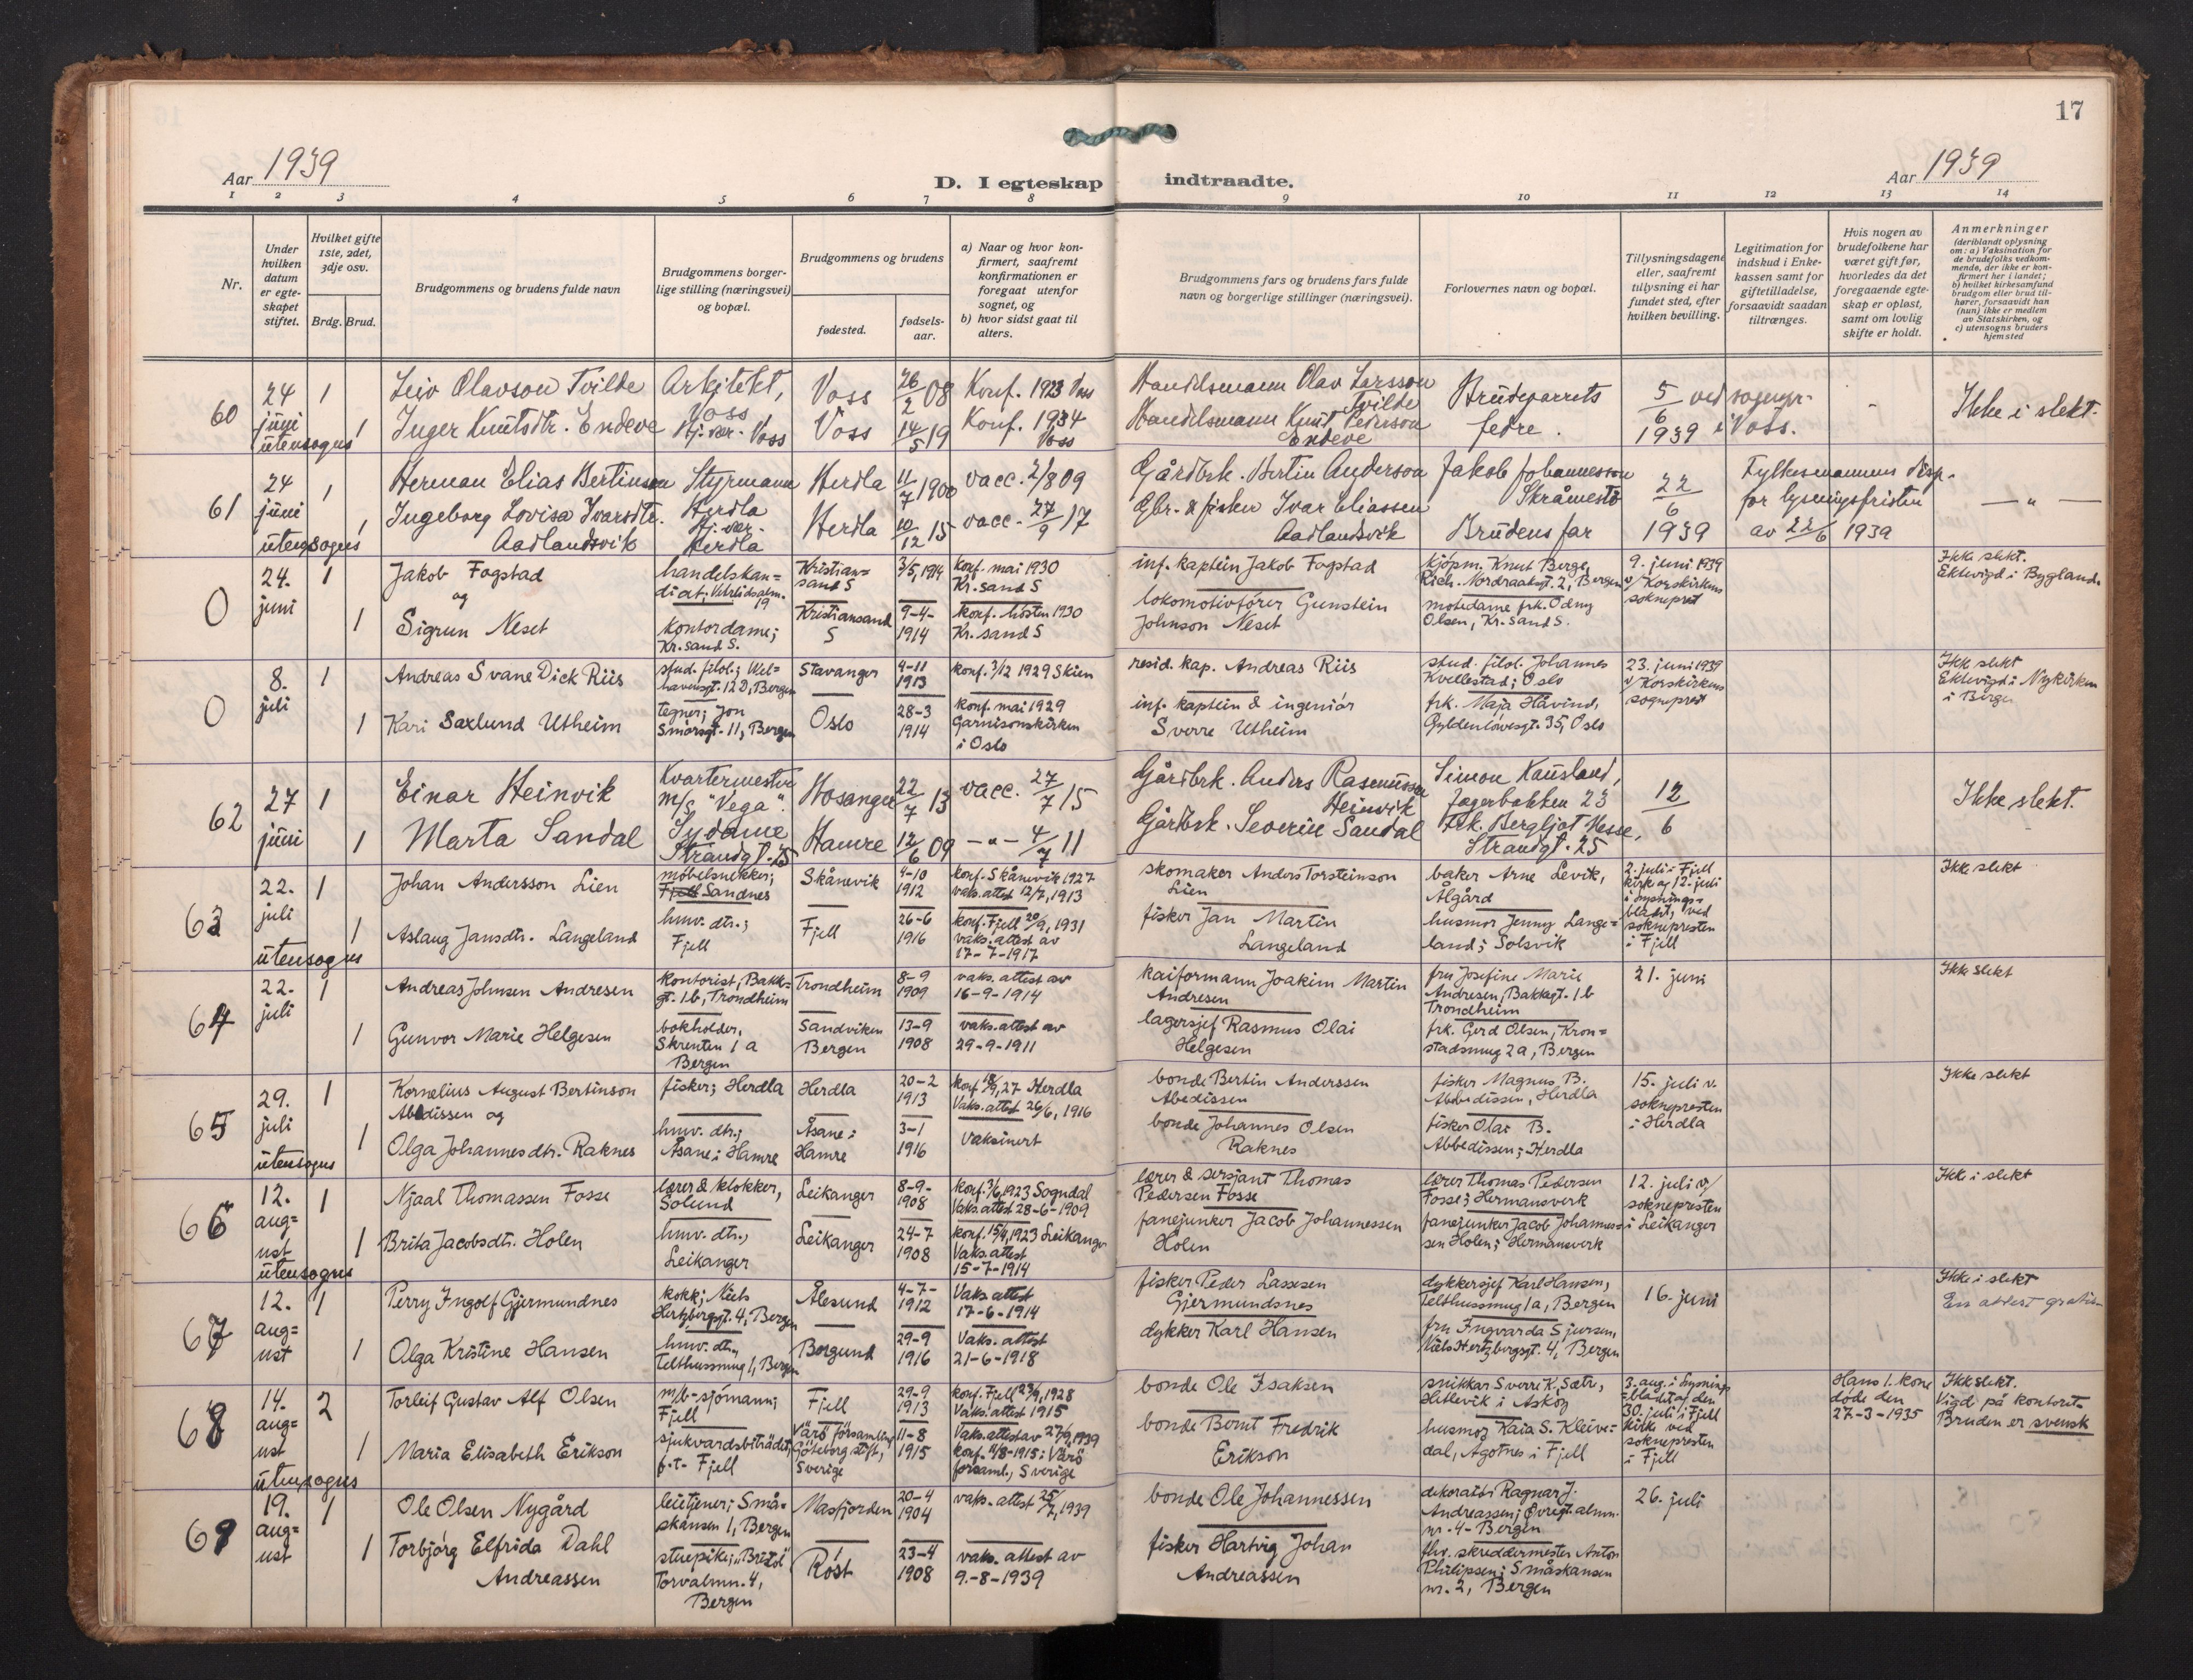 17
Aar 1939
D. I egteskap indtraadte.
Aar 1939
1 2 3 4 5 6 7 8 9 10 11 12 13 14
Nr.
Under hvilken datum er egte-skapet stiftet.
Hvilket gifte 1ste, 2det, 3dje osv.
Brdg. Brud.
Brudgommens og brudens fulde navn
Brudgommens borger-lige stilling (næringsvei) og bopæl.
Brudgommens og brudens
fødested.
fødsels-aar.
a) Naar og hvor kon-firmert, saafremt konfirmationen er foregaat utenfor sognet, og
b) hvor sidst gaat til alters.
Brudgommens fars og brudens fars fulde navn og borgerlige stillinger (næringsvei).
Forlovernes navn og bopæl.
Tillysningsdagene eller, saafremt tillysning ei har fundet sted, efter hvilken bevilling.
Legitimation for indskud i Enke-kassen samt for giftetilladelse, forsaavidt saadan tiltrænges.
Hvis nogen av brudefolkene har været gift før, hvorledes da det foregaaende egte-skap er opløst, samt om lovlig skifte er holdt.
Anmerkninger
(deriblandt oplysning om: a) Vaksination for de brudefolks vedkom-mende, der ikke er kon-firmert her i landet; b) hvilket kirkesamfund brudgom eller brud til-hører, forsaavidt han (hun) ikke er medlem av Statskirken, og c) utensogns bruders hjemsted
60
24 juni utensogns
1
Leiv Olavson Tvilde
Arkitekt, Voss
Voss
26/2 08
Konf. 1923 Voss
Handelsmann Olav Larsson Tvilde
Brudeparrets fedre.
5/6 1939
ved sogнepr. i Voss.
-
Ikke i slekt.
1
Inger Knutsdtr. Endeve
Hj. vær. Voss
Voss
14/5 19
Konf. 1934 Voss
Handelsmann Knut Pederson Endeve
61
24 juni utensogns
1
Herman Elias Bertinson
Styrmann Herdla
Herdla
11/7 1900
vacc. 2/8 09
Gårdbrk. Bertin Anderson
Jakob Johannesson Skråmestø
22/6 1939
Fylkesmannens disp. for lysningsfristen av 22/6 1939
— " —
1
Ingeborg Lovisa Ivarsdtr. Aadlandsvik
Hj. vær. Herdla
Herdla
10/12 15
vacc. 27/9 17
Gbr. & fisker Ivar Eliassen Aadlandsvik
Brudens far
0
24. juni
1
Jakob Fogstad
og
handelskan=didat; Vetrlidsalm. 19
Kristian=sand S
3/5, 1914
konf. mai 1930 Kr. sand S
inf. kaptein Jakob Fogstad
kjøpm. Knut Berge, Rich. Nordraaksgt. 2, Bergen
9. juni 1939 v/Korskirkens sokneprest
Ikke slekt.
Ektevigd i Bygland.
1
Sigrun Neset
kontordame; Kr. sand S.
Kristiansand S
9-4-1914
konf. høsten 1930 Kr. sand S
lokomotivfører Gunstein Johnson Neset
motedame frk. Odny Olsen, Kr. sand S.
0
8. juli
1
Andreas Svane Dick Riis
stud. filol.; Wel=havensgt. 12 D, Bergen
Stavanger
4-11 1913
konf. 3/12 1929 Skien
resid. kap. Andreas Riis
stud. filol. Johannes Kvellestad; Oslo
23. juni 1939 v/Korskirkens sogneprest
Ikke slekt
Ektevigd i Nykirken i Bergen
1
Kari Saxlund Utheim
tegner; Jon Smørsgt. 11, Bergen
Oslo
28-3 1914
konf. mai 1929 Garnisonskirken i Oslo
inf. kaptein & ingeniør Sverre Utheim
frk. Maja Håvind, Gyldenløvesgt. 35, Oslo
62
27 juni
1
Einar Heinvik
Kvartermester m/s "Vega".
Hosanger
22/7 13
vacc. 27/7 15
Gårdbrk. Anders Rasmussen Heinvik
Simon Kausland, Jægerbakken 23
12/6
Ikke slekt.
1
Marta Sandal
Sydame Strandgt. 25
Hamre
12/6 09
- " - 4/7 11
Gårdbrk. Severin Sandal
Frk. Bergljot Hesse, Strandgt. 25
63
22. juli utensogns
1
Johan Andersson Lien
møbelsnekker; Fjell Sandnes
Skånevik
4-10 1912
konf. Skånevik 1927 vaks. attest 12/7, 1913
skomaker Anders Torsteinson Lien
baker Arne Levik, Ålgård
2. juli i Fjell kirke og 12. juli i Lysnings=bladet, ved soknepresten i Fjell
Ikke slekt
1
Aslaug Jansdtr. Langeland
hmv. dtr.; Fjell
Fjell
26-6 1916
konf. Fjell 20/9, 1931 vaks. attest av 17-7-1917
fisker Jan Martin Langeland
husmor Jenny Lange=land; Solsvik
64
22. juli
1
Andreas Johnsen Andresen
kontorist, Bakk=gt. 1b, Trondheim
Trondheim
8-9 1909
vaks. attest av 16-9-1914
kaiformann Joakim Martin Andresen
fru Josefine Marie Andresen, Bakkegt. 1b Trondheim
21. juni
Ikke slekt
1
Gunvor Marie Helgesen
bokholder, Skrenten 1 a Bergen
Sandviken Bergen
13-9 1908
vaks. attest av 29-9-1911
lagersjef Rasmus Olai Helgesen
frk. Gerd Olsen, Kron=stadsmug 2a, Bergen
65
29. juli utensogns
1
Kornelius August Bertinson Abedissen og
fisker; Herdla
Herdla
20-2 1913
konf. 18/9, 27 Herdla Vaks. attest 26/6, 1916
bonde Bertin Anderssen Abedissen
fisker Magnus B. Abbedissen, Herdla
15. juli v. soknepresten i Herdla
Ikke slekt
1
Olga Johannesdtr. Raknes
hmv. dtr.; Åsane i Hamre
Åsane i Hamre
3-1 1916
Vaksinert
bonde Johannes Olsen Raknes
fisker Olai B. Abbedissen; Herdla
66
12. aug=ust utensogns
1
Njaal Thomassen Fosse
lærer & klokker, Solund
Leikanger
8-9-1908
konf. 3/6, 1923 Sogndal Vaks. attest 28-6-1909
lærer & sersjant Thomas Pedersen Fosse
lærer Thomas Pedersen Fosse; Hermansverk
12. juli v/ soknepresten i Leikanger
Ikke i slekt
1
Brita Jacobsdtr. Holen
hmv. dtr., Leikanger
Leikanger
24-7 1908
konf. 15/4, 1923 Leikanger Vaks. attest 15-7-1914
fanejunker Jacob Johannessen Holen
fanejunker Jacob Johannes=sen Holen; Hermansverk
67
12. aug=ust
1
Perry Ingolf Gjermundnes
kokk; Niels Hertzbergsgt. 4, Bergen
Ålesund
4-7-1912
Vaks attest 17-6-1914
fisker Peder Lassesen Gjermundsnes
dykkersjef Karl Hansen, Telthussmug 1a, Bergen
16. juni
Ikke i slekt
En attest gratis
1
Olga Kristine Hansen
hmv. dtr., Telthussmug 1, Bergen
Borgund
29-9 1916
Vaks. attest 21-6-1918
dykker Karl Hansen
fru Ingvarda Sjursen, Niels Hertzbergsgt. 4, Bergen
68
14. aug=ust utensogns
2
Torleif Gustav Alf Olsen
m/b-sjömann; Fjell
Fjell
29-9 1913
konf. Fjell 23/9, 1928 Vaks. attest 1915
bonde Ole Isaksen
snikkar Sverre K. Sætr, Hetlevik i Askøy
3. aug. i Lysnings=bladet og den 30. juli i Fjell kirke ved soknepresten i Fjell
Hans 1. kone døde den 27-3-1935
Ikke slekt.
Vigd på kontoret.
Bruden er svensk
1
Maria Elisabeth Erikson
sjukvardsbiträdet, f.t. Fjell
Värö församling Göteborg stift, Sverige
11-8 1915
Vaks. attest av 27/9, 1939 konf. 11/8-1915 i Värö forsaml., Sverige
bonde Bernt Fredrik Erikson
husmor Kaia S. Kleive=dal, Agotnes i Fjell
69
19. aug=ust
1
Ole Olsen Nygård
leietjener; Små=skansen 1, Bergen
Masfjorden
20-4 1904
vaks. attest 25/7, 1939
bonde Ole Johannessen
dekoratør Ragnar J. Andreassen; Øvregt. almn. nr. 4 - Bergen
26. juli
1
Torbjørg Elfrida Dahl Andreassen
stuepike; "Bristol" Torvalmn. 4, Bergen
Røst
23-4 1908
vaks. attest av 9.-8-1939
fisker Hartvig Johan Andreassen
fhv. skreddermester Anton Philipsen; Småskansen nr. 2, Bergen